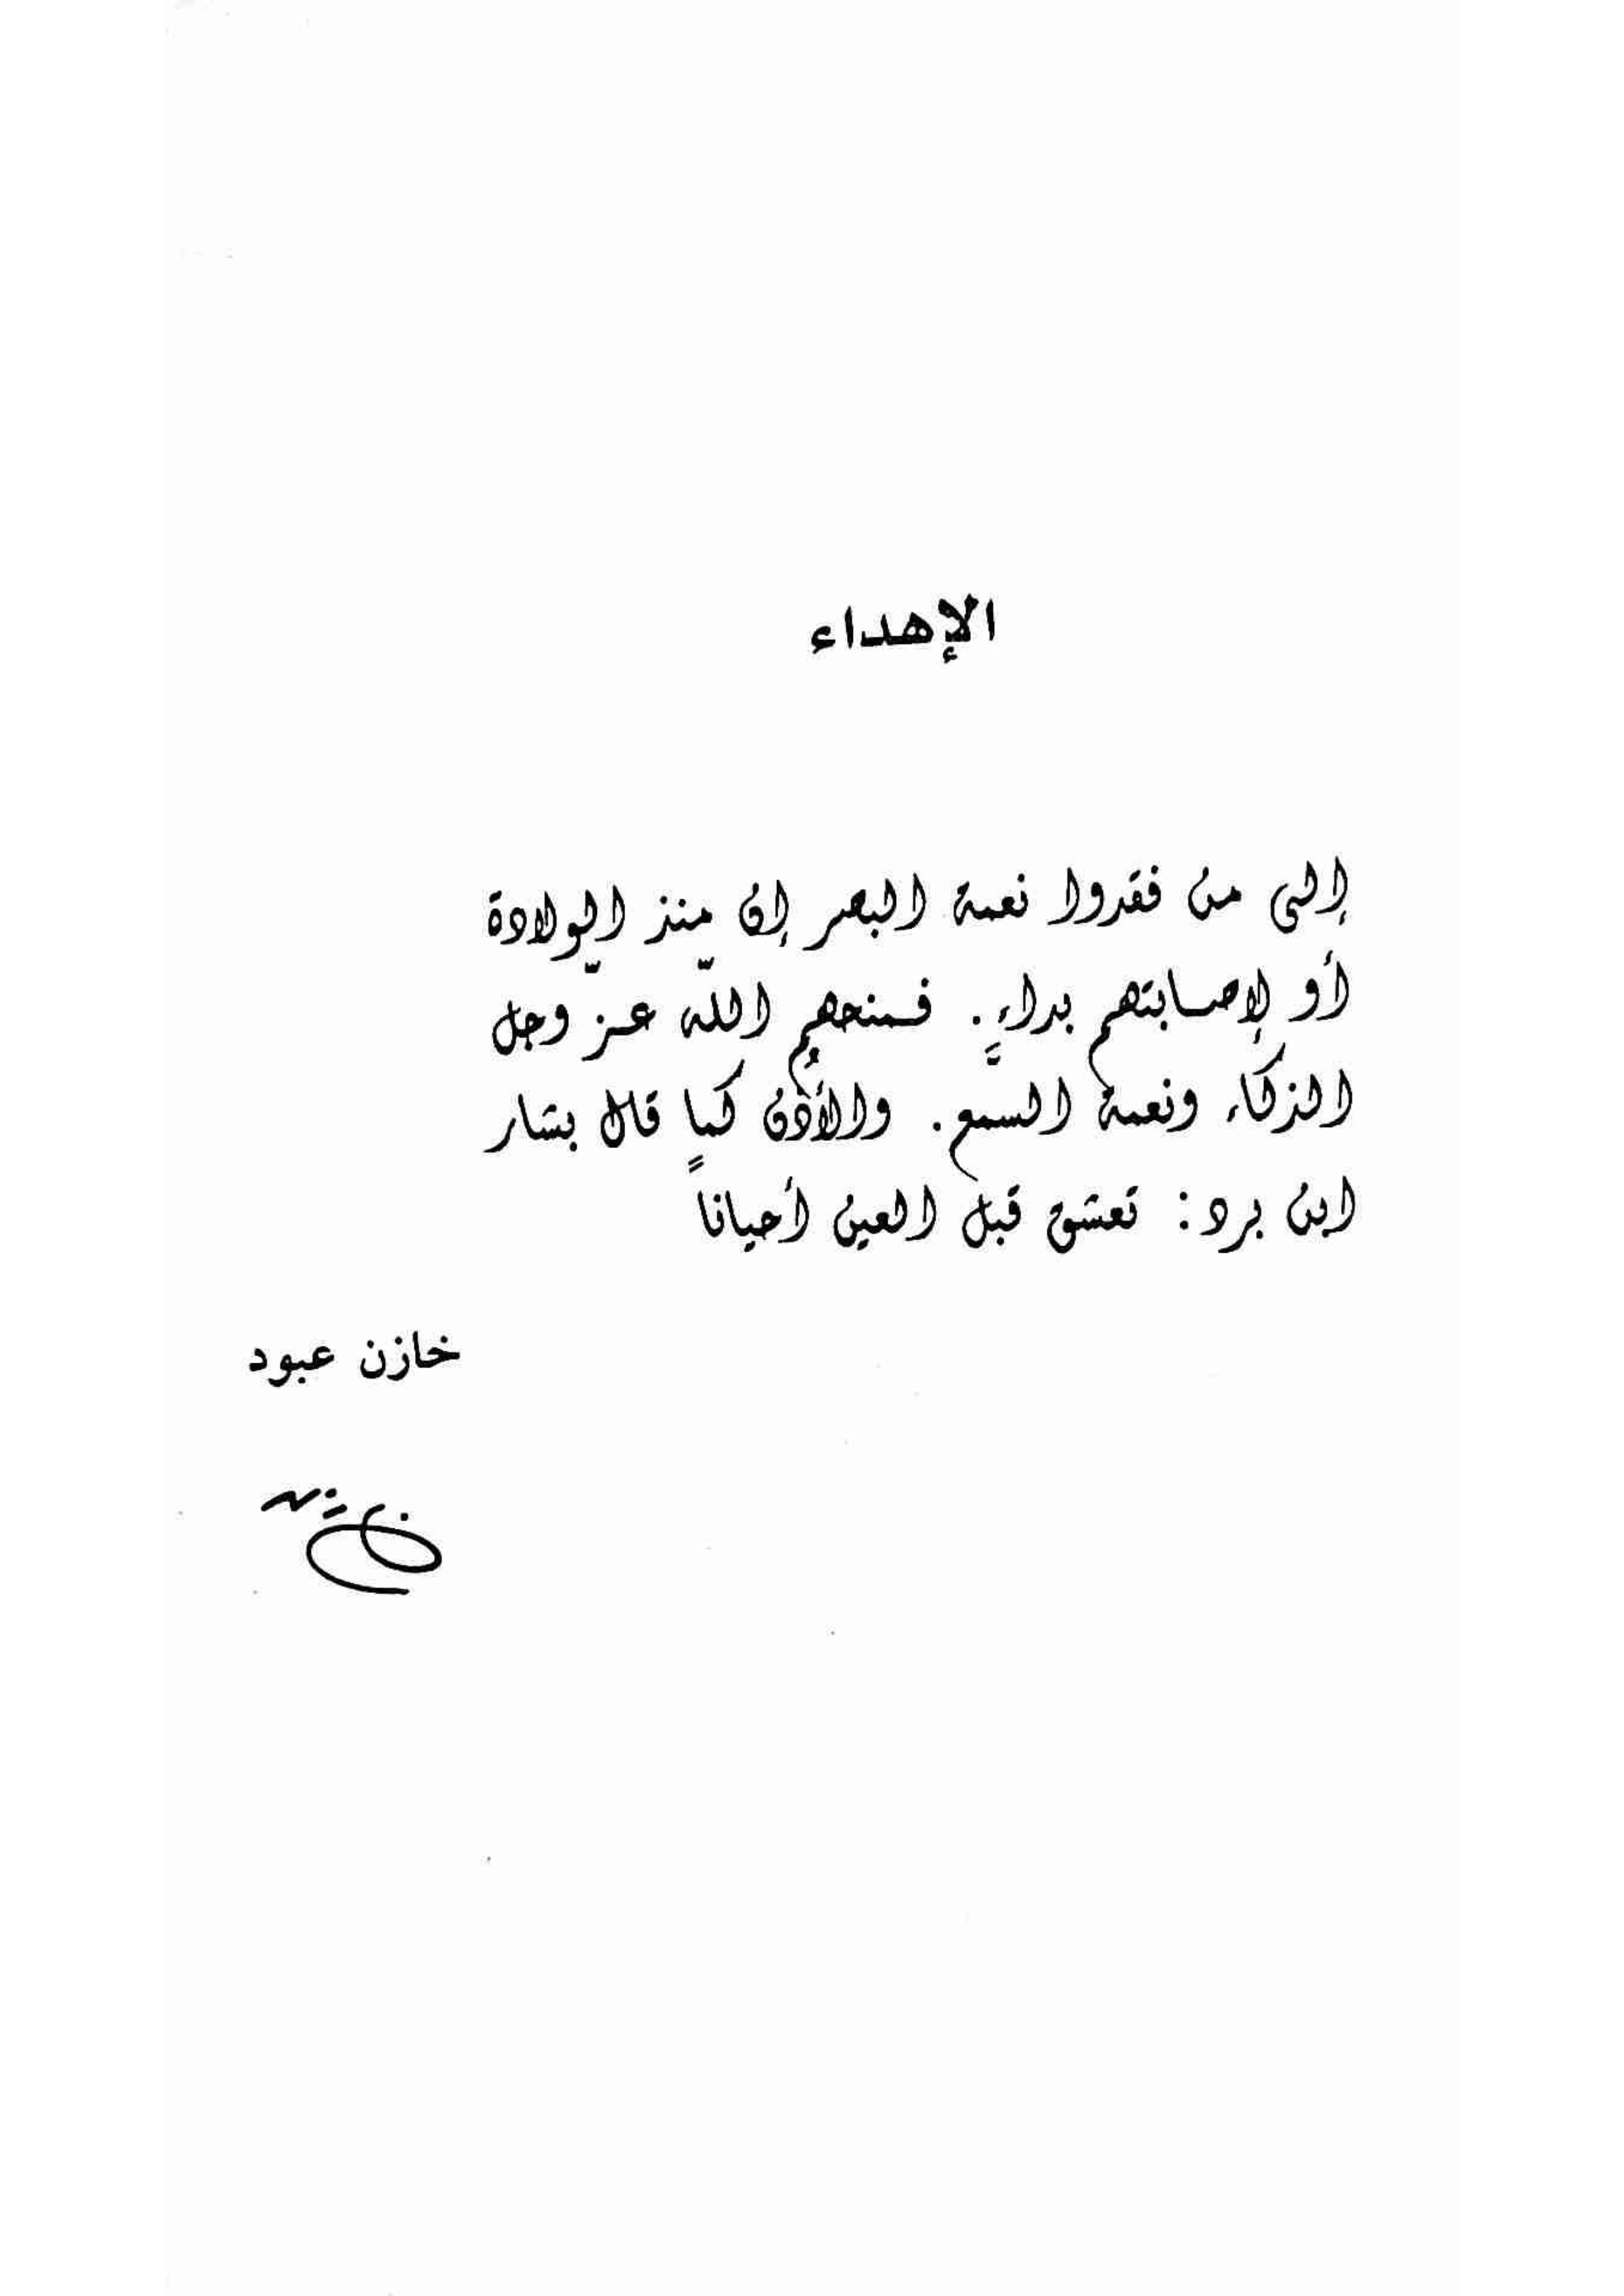 الإهداء
إلى من فقدوا نعمة البصر إن منذ الولادة
أو لإصابتهم بداءٍ. فمنحهم اللّه عزّ وجل
الذكاء ونعمة السمع. والأُذن كما قال بشار
ابن برد: تعشق قبل العين أحياناً
خازن عبود